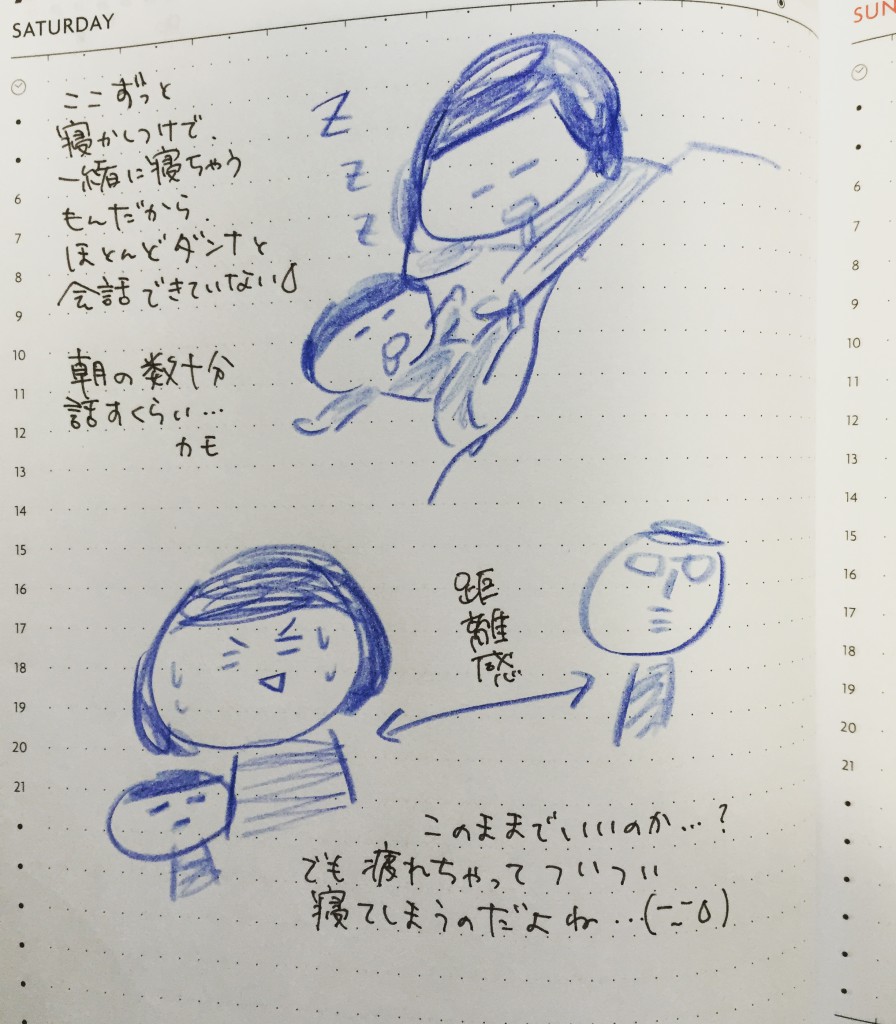 SATURDAY
SUN
ここずっと
寝かしつけで、
一緒に寝ちゃう
もんだから、
ほとんどダンナと
会話できていない
朝の数十分
話すくらい…
カモ
Z
Z
Z
距離感
このままでいいのか…?
でも疲れちゃってついつい
寝てしまうのだよね…(ー_ー;)
6
7
8
9
10
11
12
13
14
15
16
17
18
19
20
21
6
7
8
9
10
11
12
13
14
15
16
17
18
19
20
21